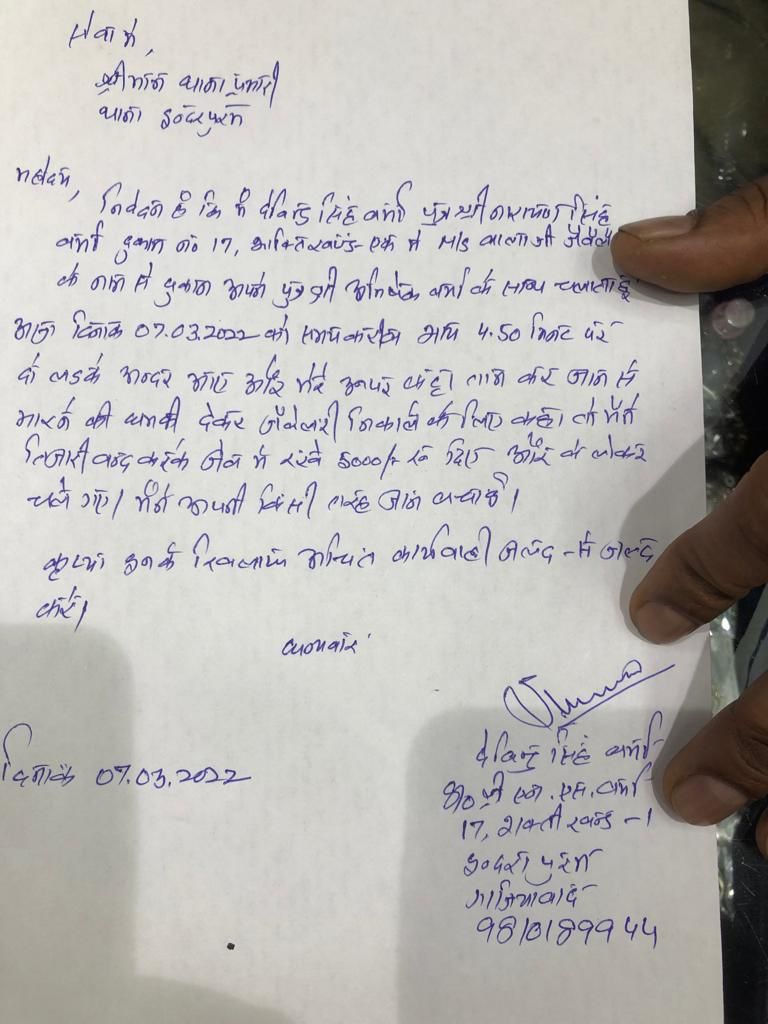 सेवा में,
श्रीमान थाना प्रभारी
थाना इन्दरपुरम
महोदय,
निवेदन है कि मैं देविन्द्र सिंह वर्मा पुत्र श्री नारायण सिंह
वर्मा दुकान नं० 17, शक्तिखण्ड-एक में M/S बालाजी ज्वैलर्स
के नाम से दुकान अपने पुत्र श्री अभिषेक वर्मा के साथ चलाता हूँ
आज दिनांक 07.03.2022 को समय करीब 4.50 मिनट पर
दो लडके अन्दर आए और मेरे ऊपर कट्टा तान कर जान से
मारने की धमकी देकर ज्वैलरी निकालने के लिए कहा तो मैंने
तिजोरी बन्द करके जेब में रखे 5000/- रु० दिए और वे लेकर
चले गए। मैंने अपनी किसी तरह जान बचाई।
कृप्या इनके खिलाफ उचित कार्यवाही जल्द-से जल्द
करें।
धन्यवाद
देविन्द्र सिंह वर्मा
दिनांक 07.03.2022
S/o श्री एन. एस. वर्मा
17, शक्ती खन्ड -1
इन्दरा पुरम
गाजियाबाद
9810189944